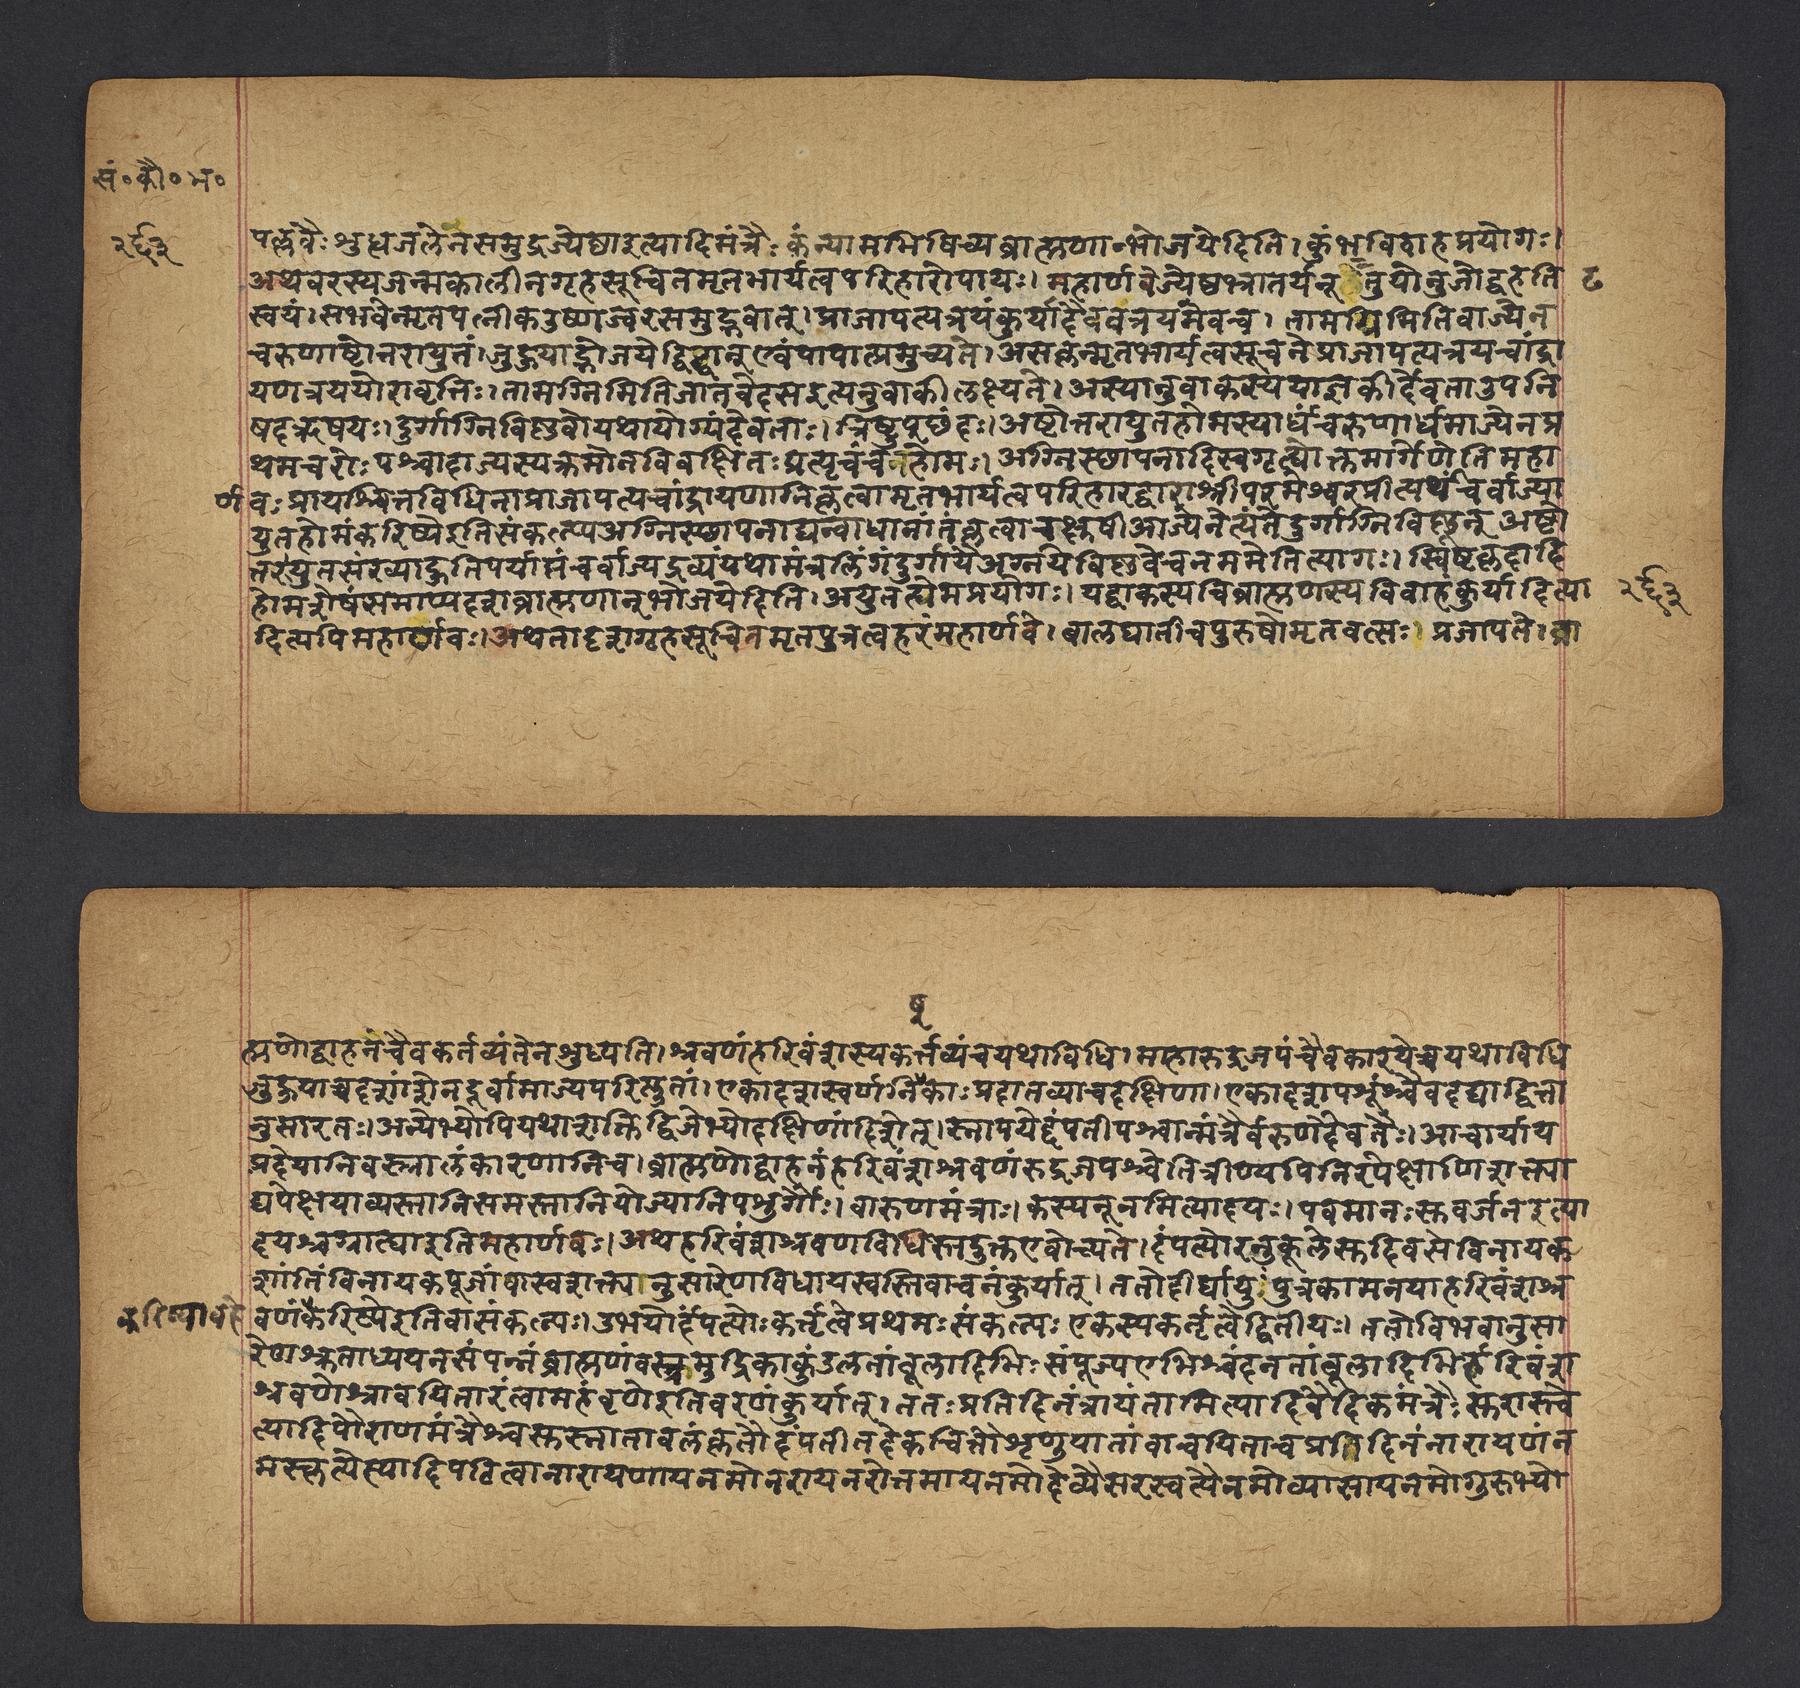 सं०कौ०भ०
२९३
पल्लवैः शुधजलेनसमुद्रज्येष्ठाइत्यादिमंत्रैः कंन्यामभिषिच्यब्राह्मणान्भोजयेदिति। कुंभविवाहप्रयोगः।
अथवरस्यजन्मकालीनगृहसूचितमृतभार्यत्वपरिहारोपायः। महार्णवेज्येष्ठभ्रातर्यनू तुयोनुजोद्वहेति
स्वयं। सभवेन्मृतपत्नीकउष्णज्वरसमुद्भवात्। प्राजापत्यत्रयंकुर्याद्दैववत्रयमेवच। तामग्निमितिवाज्येन
चरुणाष्टोत्तरायुतं। जुहुयाद्भोजयेद्विप्रान् एवंपापात्प्रमुच्यते। असकृन्मृतभार्यत्वसूचनेप्राजापत्यत्रयचांद्रा
यणत्रययोरावृत्तिः। तामग्निमितिजातवेदसइत्यनुवाकोलक्ष्यते। अस्यानुवाकस्ययाज्ञकीर्देवताउपनि
षदऋषयः। दुर्गाग्निविष्णवोयथायोग्यंदेवताः। त्रिष्टुप्छंदः। अष्टोत्तरायुतहोमस्यार्धंचरुणार्धमाज्येनप्र
थमचरोःपश्चादाज्यस्यक्रमोनविवक्षितःप्रत्यृचंचनहोमः। अग्निस्छापनादिस्वगृह्योक्तमार्गेणेतिमहा
र्णवःप्रायश्चित्तविधिनाप्राजापत्यचांद्रायणानिकृत्वामृतभार्यत्वपरिहारद्वाराश्रीपरमेश्वरप्रीत्यर्थंचर्वाज्या
युतहोमंकरिष्येइतिसंकल्प्यअग्निस्छापनाद्यन्वाधानांतंकृत्वाचक्षुषीआज्येनेत्यंतेदुर्गाग्निविष्णून् अष्टो
त्तरयुतसंख्याहुतिपर्याप्तंचर्वाज्यद्रव्यंयथामंत्रलिंगंदुर्गायैअग्नयेविष्णवेचनममेतित्यागः। स्विष्टकृदादि
होमशेषंसमाप्यदशब्राह्मणान्भोजयेदिति। अयुतहोमप्रयोगः। यद्वाकस्यचिब्राह्मणस्यविवाहंकुर्यादित्या
२९३
दित्यपिमहार्णवः। अथतादृशगृहसूचितमृतपुत्रत्वहरंमहार्णवे। बालघातीचपुरुषोमृतवत्सः प्रजापते। ब्रा
ह्मणोद्वाहनंचैवकर्तव्यंतेनशुध्यति। श्रवणंहरिवंशस्यकर्त्तव्यंचयथाविधि। महारुद्रजपंचैवकारयेच्चयथाविधि
जुहुयाच्चदशांशेनदूर्वामाज्यपरिस्तुतां। एकादशस्वर्णनिकाःप्रदातव्याचदक्षिणा। एकादशपशूंश्चैवदद्याद्वित्ता
नुसारतः। अन्येभ्योपियथाशक्तिद्विजेभ्योदक्षिणांदिशेत्। स्नापयेद्दंपतीपश्चान्मंत्रैर्वरुणदैवतैः। आचार्याय
प्रदेयानिवस्त्रालंकारणानिच। ब्राह्मणोद्वाहनंहरिवंशश्रवणंरुद्रजपश्चेतित्रीण्यपिनिरपेक्षाणिशक्त्या
द्यपेक्षयाव्यस्तानिसमस्तानियोज्यानिपशुर्गौः। वारुणमंत्राः। कस्यनूनमित्यादयः। पवमानःस्तवर्जनइत्या
दयश्चआत्घाइतिमहार्णवः। अथहरिवंशश्रवणविधिस्तदुक्तएवोच्यते। दंपत्योरनुकूलेस्तदिवसेविनायक
शांतिंविनायकपूजांषास्वशक्त्यानुसारेणविधायस्वस्तिवाचनंकुर्यात्। ततोदीर्घायुःपुत्रकामनयाहरिवंशश्र
वणंकरिष्येइतिवासंकल्पः। उभयोर्दंपत्योःकर्त्तृत्वेप्रथमःसंकल्पः एकस्यकर्तृत्वेद्वितीयः। ततोविभवानुसा
रेणश्रुताध्ययनसंपन्नंब्राह्मणंवस्त्रमुद्रिकाकुंडलतांबूलादिभिःसंपूज्यएभिश्चंदनतांबूलादिभिर्हरिवंश
श्रवणेश्रावयितारंत्वामहंवृणेइतिवरणंकुर्यात्। ततःप्रतिदिनंत्रायंतामित्यादिवैदिकमंत्रैः स्तरास्त्वे
त्यादिपौराणमंत्रैश्चस्तस्नातावलंकृतौदंपतीतदेकचित्तौशृणुयातांवाचयिताचप्रतिदिनंनारायणंन
मस्कृत्येत्यादिपठित्वानारायणायनमोनरायनरोत्तमायनमोदेव्यैसरस्वत्यैनमोव्यासायनमोगुरुभ्यो